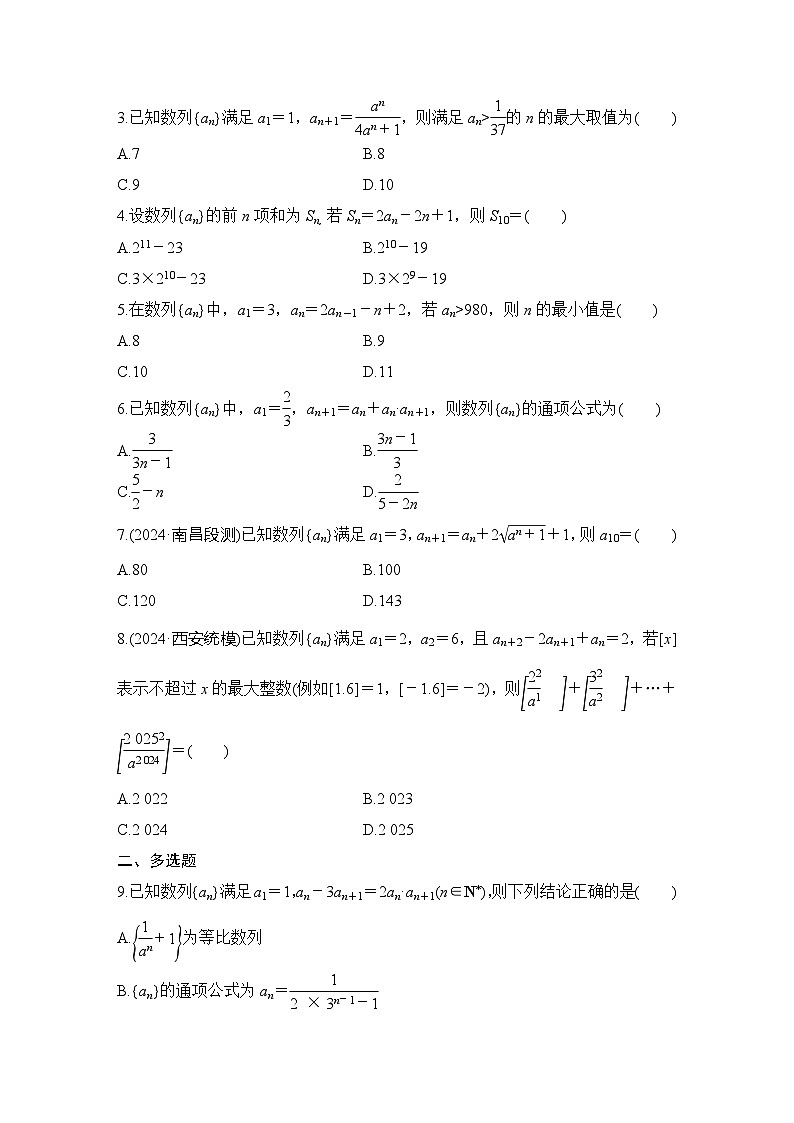 3.已知数列{aₙ}满足a₁＝1，aₙ₊₁＝aⁿ/(4aⁿ＋1)，则满足aₙ>1/37的n的最大取值为(　　)
A.7　　B.8
C.9　　D.10
4.设数列{aₙ}的前n项和为Sₙ, 若Sₙ＝2aₙ－2n＋1，则S₁₀＝(　　)
A.2¹¹－23　　B.2¹⁰－19
C.3×2¹⁰－23　　D.3×2⁹－19
5.在数列{aₙ}中，a₁＝3，aₙ＝2aₙ₋₁－n＋2，若aₙ>980，则n的最小值是(　　)
A.8　　B.9
C.10　　D.11
6.已知数列{aₙ}中，a₁＝2/3，aₙ₊₁＝aₙ＋aₙ·aₙ₊₁，则数列{aₙ}的通项公式为(　　)
A.3/(3n－1)　　B.(3n－1)/3
C.5/2－n　　D.2/(5－2n)
7.(2024·南昌段测)已知数列{aₙ}满足a₁＝3,aₙ₊₁＝aₙ＋2√(aⁿ＋1)＋1,则a₁₀＝(　　)
A.80　　B.100
C.120　　D.143
8.(2024·西安统模)已知数列{aₙ}满足a₁＝2，a₂＝6，且aₙ₊₂－2aₙ₊₁＋aₙ＝2，若[x]
表示不超过x的最大整数(例如[1.6]＝1，[－1.6]＝－2)，则[2²/a¹]＋[3²/a²]＋…＋
[2 025²/a²⁰²⁴]＝(　　)
A.2 022　　B.2 023
C.2 024　　D.2 025
二、多选题
9.已知数列{aₙ}满足a₁＝1,aₙ－3aₙ₊₁＝2aₙ·aₙ₊₁(n∈N*),则下列结论正确的是(　　)
A.{1/aⁿ＋1}为等比数列
B.{aₙ}的通项公式为aₙ＝1/(2 × 3ⁿ⁻¹－1)